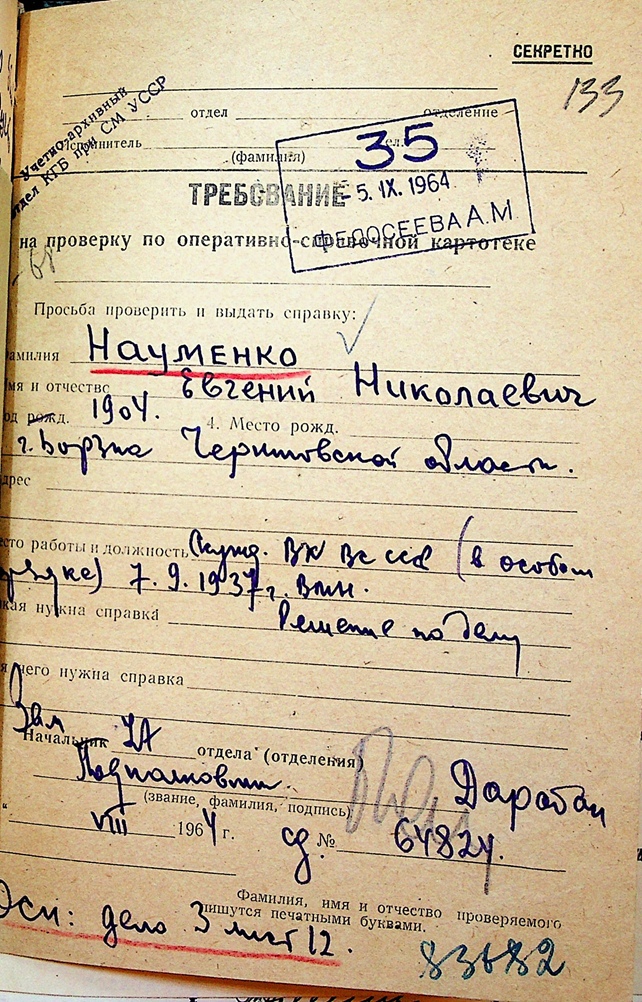 СЕКРЕТНО
133
Учетно-архивный
отдел КГБ при СМ УССР
отдел отделение
сполнитель
(фамилия)
35
- 5. IX. 1964
ФЕДОСЕЕВА А.М
ТРЕБОВАНИЕ
на проверку по оперативно-справочной картотеке
Просьба проверить и выдать справку:
амилия Науменко
мя и отчество Евгений Николаевич
од рожд. 1904. 4. Место рожд.
г. Борзна Черниговской области.
дрес
сто работы и должность Осужд. ВК ВС СССР (в особом
порядке) 7.9.1937г. ВМН.
кая нужна справка Решение по делу
я чего нужна справка
Зам
Начальник УА отдела (отделения)
Подполковник
(звание, фамилия, подпись)
" VIII 1964 г.
сд № 64824.
Фамилия, имя и отчество проверяемого
пишутся печатными буквами.
Осн: дело 3 лист 12.
83682